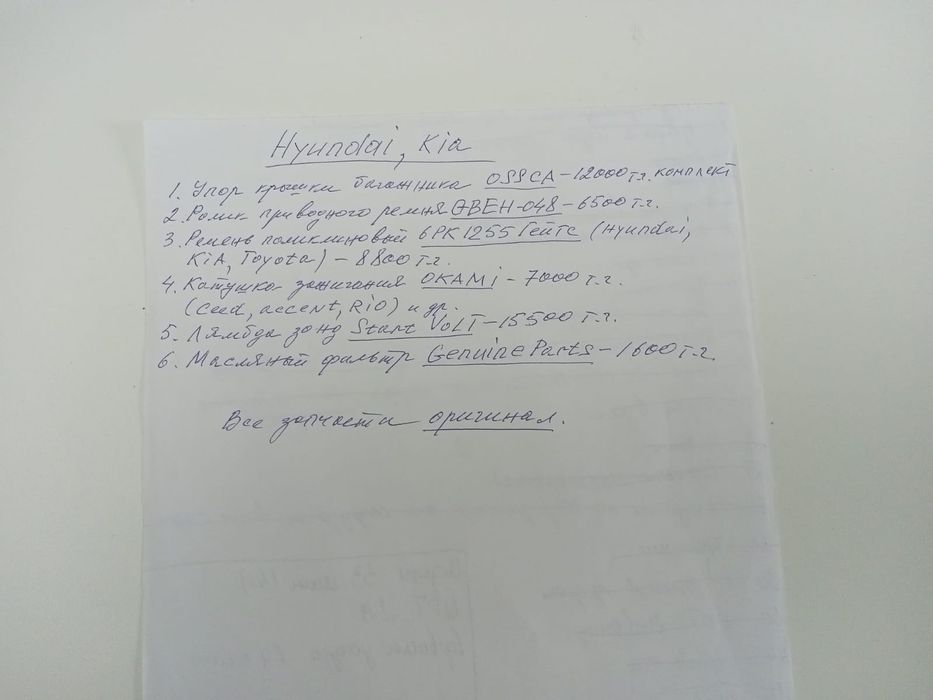 Hyundai, Kia
1. Упор крышки багажника OSSCA - 12000 т.г. комплект
2. Ролик приводного ремня GBEH-048 - 6500 т.г.
3. Ремень поликлиновый 6PK1255 Гейтс (Hyundai,
KiA, Toyota) - 8800 т.г.
4. Катушка зажигания OKAMi - 7000 т.г.
(Ceed, accent, RiO) и др.
5. Лямбда зонд Start VoLT - 15500 т.г.
6. Масляный фильтр Genuine Parts - 1600 т.г.
Все запчасти оригинал.